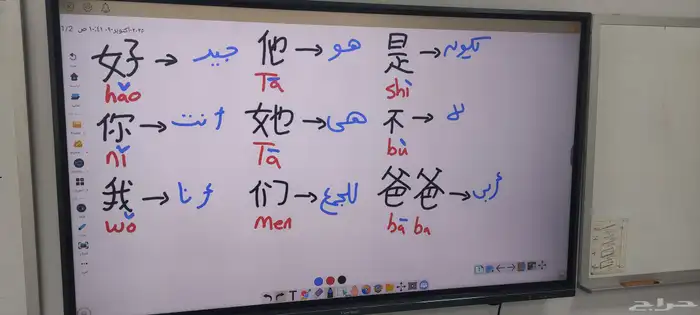 好 → جيد 他 → هو 是 → تكون
hǎo Tā shì
你 → أنت 她 → هى 不 → لا
nǐ Tā bù
我 → أنا 们 → للجمع 爸爸 → أبى
wǒ men bā ba
حراج